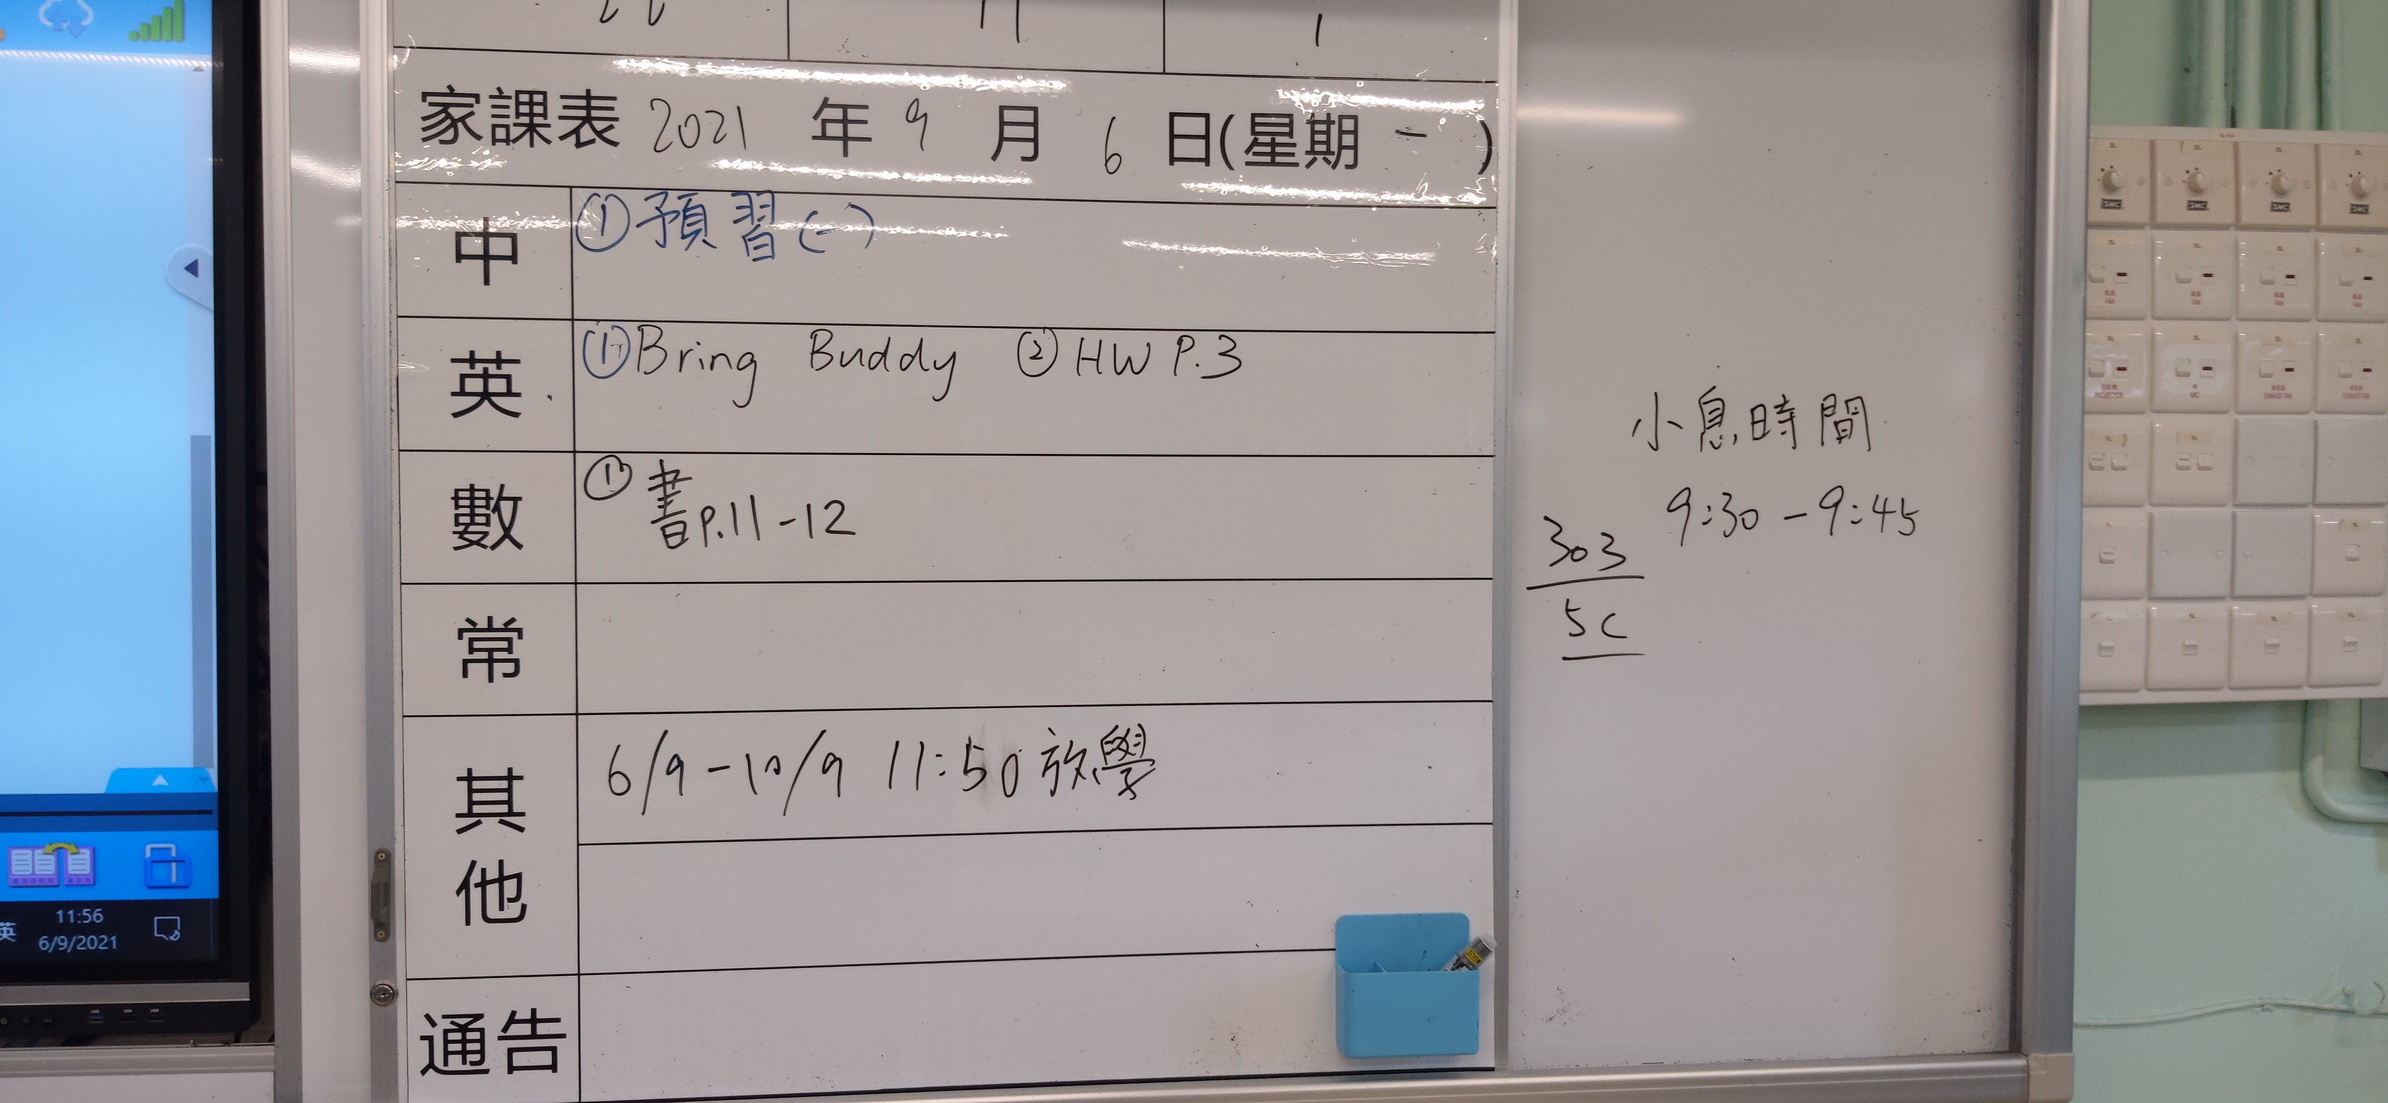 家課表 2021 年 9 月 6 日(星期 一 )
中 ①預習(一)
英 ①Bring Buddy ②HW P.3
數 ①書P.11-12
常
其他 6/9-10/9 11:50放學
通告
小息時間
9:30-9:45
303
5C
英 11:56
6/9/2021